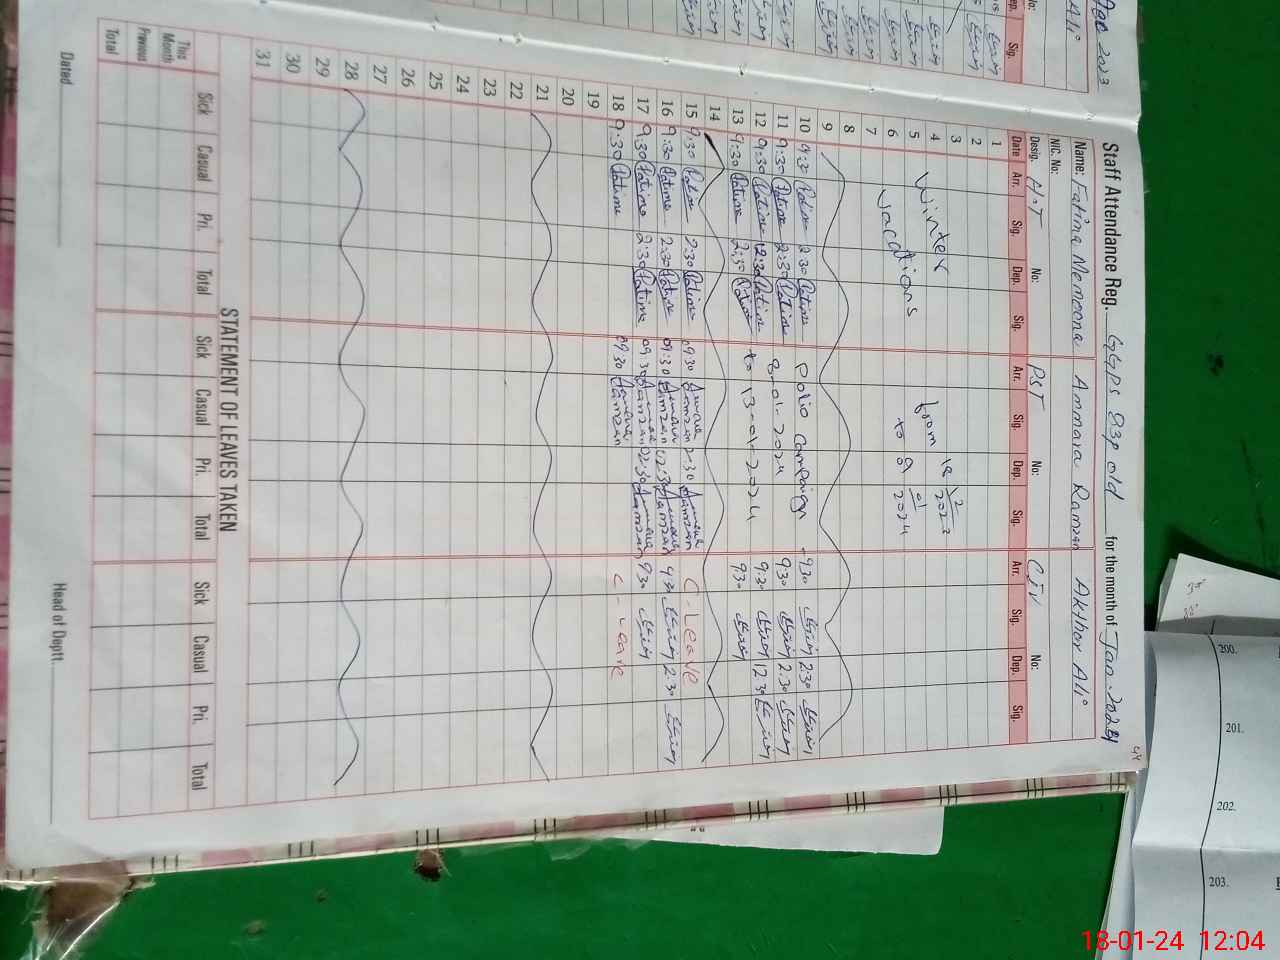 Staff Attendance Reg. GGPS 83p old for the month of Jan. 2024
Name: Fatima Memoona Ammara Ramzan Akthar Ali
NIC. No:
Desig. H.T No: PST No: CIV No:
Date Arr. Sig. Dep. Sig. Arr. Sig. Dep. Sig. Arr. Sig. Dep. Sig.
1
2
3
4 Winter from 18 12 2023
5 vacations
6 to 09 01 2024
7
8
9
10 9:30 Fatima 2:30 Fatima Polio Campaign 9:30 2:30
11 9:30 Fatima 2:30 Fatima 8-01-2024 9:30 2:30
12 9:30 Fatima 12:30 Fatima 9:30 12:30
13 9:30 Fatima 2:30 Fatima to 13-01-2024 9:30
14
15 9:30 Fatima 2:30 Fatima 09:30 Ammara Ramzan 2:30 Ammara Ramzan C-Leave
16 9:30 Fatima 2:30 Fatima 09:30 Ammara Ramzan 02:30 Ammara Ramzan 9:30 2:30
17 9:30 Fatima 2:30 Fatima 09:30 Ammara Ramzan 02:30 Ammara Ramzan 9:30
18 9:30 Fatima 09:30 Ammara Ramzan C-Leave
19
20
21
22
23
24
25
26
27
28
29
30
31
STATEMENT OF LEAVES TAKEN
Sick Casual Pri. Total Sick Casual Pri. Total Sick Casual Pri. Total
This Month
Previous
Total
Dated
Head of Deptt.
Dec 2023
Ali
No:
Sig.
200.
201.
202.
203.
18-01-24 12:04